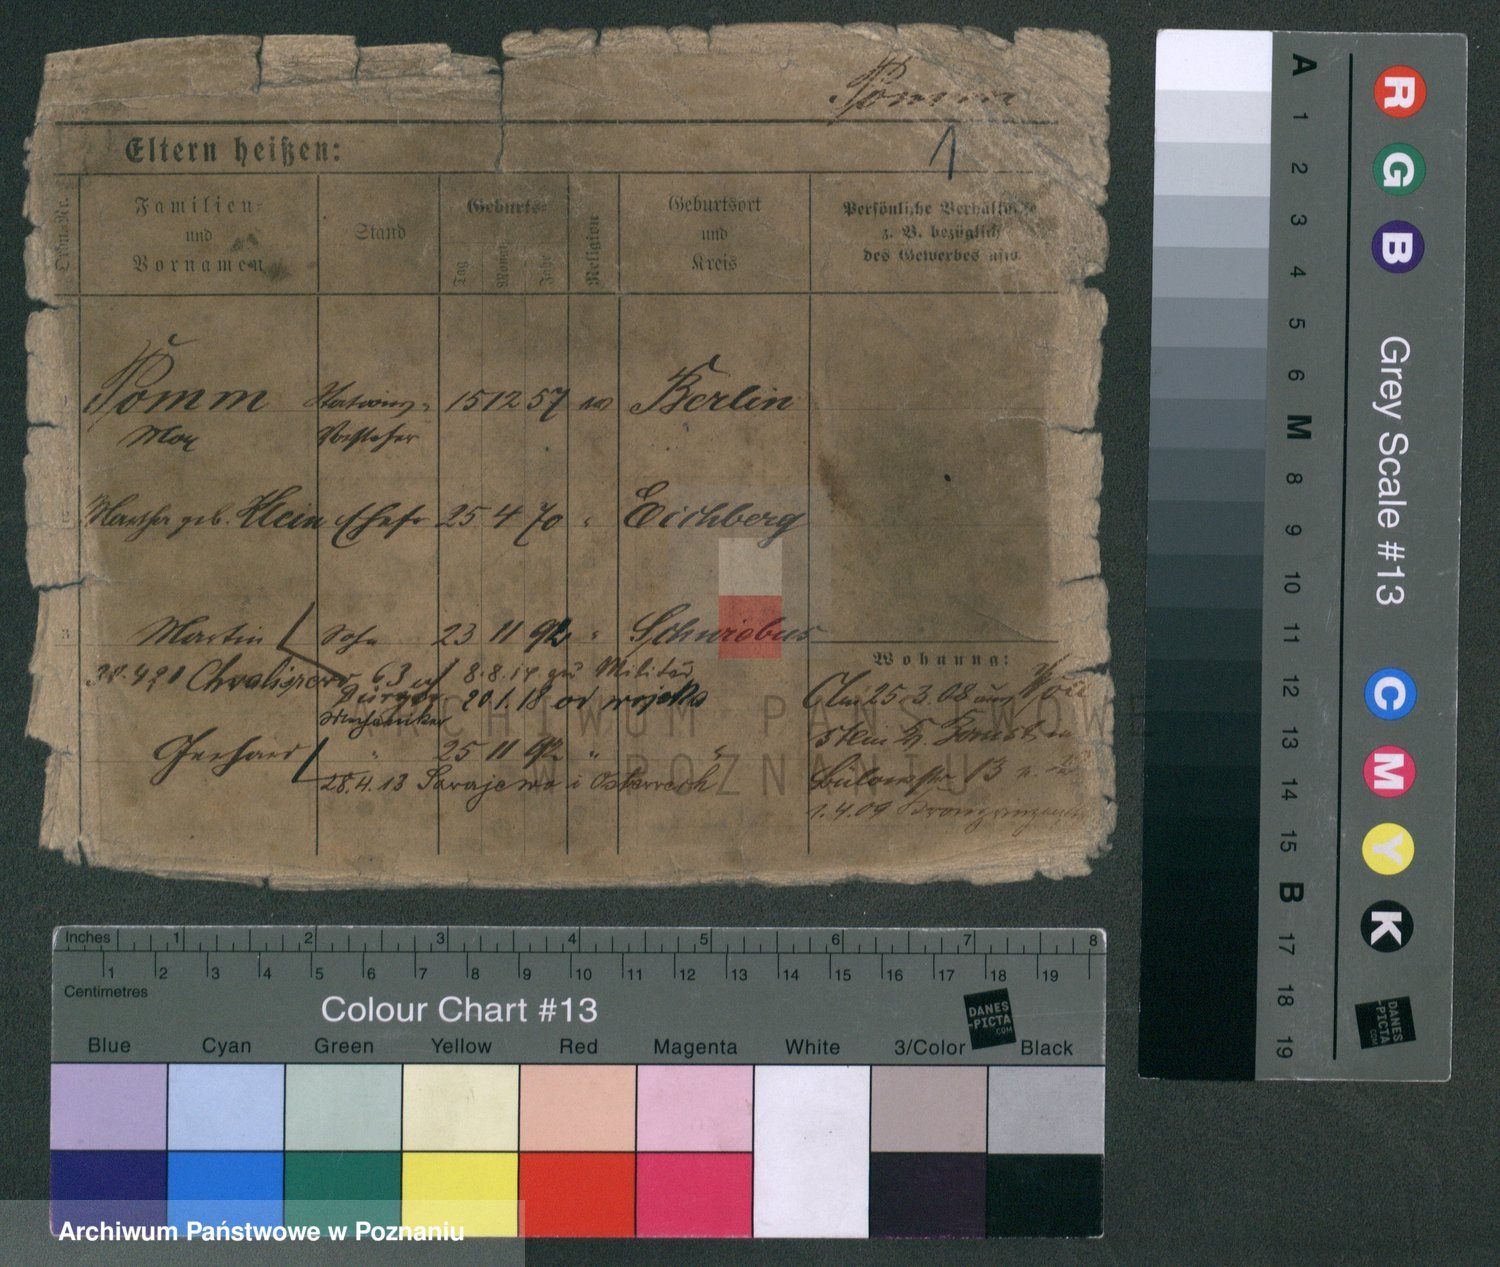 Pomm
1
Eltern heißen:
Ordn.-Nr.
Familien-
und
Vornamen
Stand
Geburts-
Tag
Monat
Jahr
Religion
Geburtsort
und
Kreis
Persönliche Verhältnisse
z. B. bezüglich
des Gewerbes usw.
Pomm Stations- 15 12 57 ev Berlin
Max Vorsteher
Martha geb. Klein Ehefr 25 4 70 " Eichberg
Martin Sohn 23 11 92 " Schwiebus
8.8.14 zum Militär
20.1.18 od wojska
Mechaniker
Gerhard " 25 11 92 " "
28.4.13 Sarajewo i Österreich
Wohnung:
25.3.08 aus
13
1.4.09
ARCHIWUM PAŃSTWOWE
W POZNANIU
A 1 2 3 4 5 6 M 8 9 10 11 12 13 14 15 B 17 18 19
R G B
Grey Scale #13
C M Y K
DANES
-PICTA
.COM
Inches 1 2 3 4 5 6 7 8
1 2 3 4 5 6 7 8 9 10 11 12 13 14 15 16 17 18 19
Centimetres
Colour Chart #13
DANES
-PICTA
.COM
Blue Cyan Green Yellow Red Magenta White 3/Color Black
Archiwum Państwowe w Poznaniu